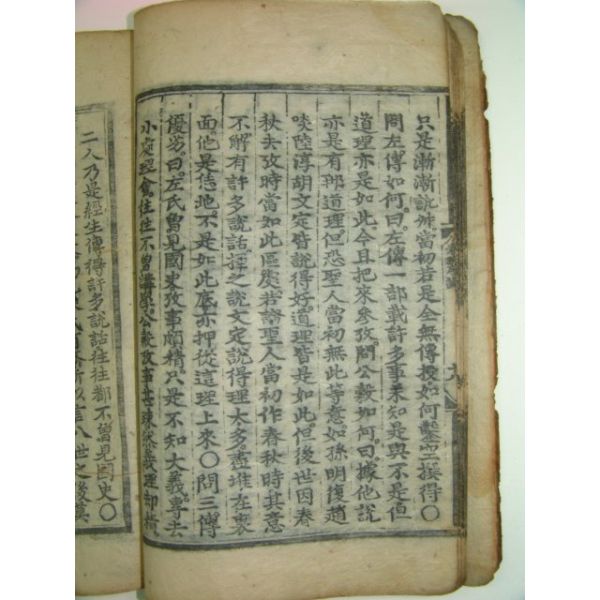 只是漸漸說舛當初若是全無傳授如何鑿空撰得○
問左傳如何曰左傳一部載許多事未知是與不是但
道理亦是如此今且把來參攷問公穀如何曰據他說
亦是有那道理但恐聖人當初無此等意如孫明復趙
啖陸淳胡文定皆說得好道理皆是如此但後世因春
秋去攷時當如此區處若論聖人當初作春秋時其意
不解有許多說話擇之說文定說得理太多盡堆在裏
面他是恁地不是如此底亦押從這理上來○問三傳
優劣曰左氏曾見國史攷事頗精只是不知大義專去
小處理會往往不曾講學公穀攷事甚疎然義理却精
二人乃是經生傳得許多說話往往都不曾見國史○
八世之後莫